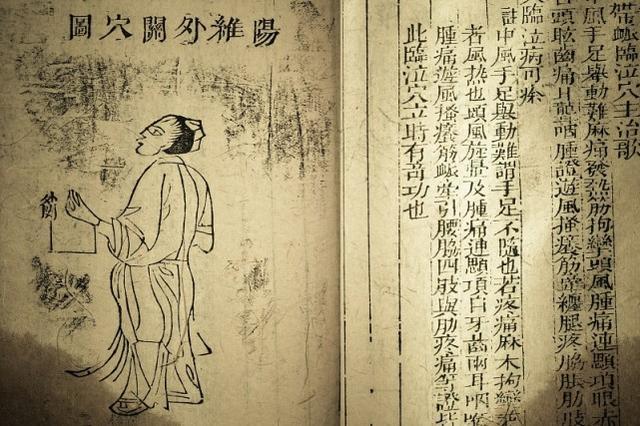 帶脈臨泣穴主治歌
中風手足舉動難麻痛發熱筋拘攣頭風腫痛連顋項眼赤
頭眩齒痛耳聾咽腫證遊風搔癢筋牽纏腿疼脇脹肋肢
臨泣病可痊
註中風手足舉動難謂手足不隨也若疼痛麻木拘攣兼
者風熱也頭風旋暈及腫痛連顋項目牙齒兩耳咽喉
腫痛遊風搔癢筋脈牽引腰脇四肢與肋疼痛等證
此臨泣穴立時有奇功也
陽維外關穴圖